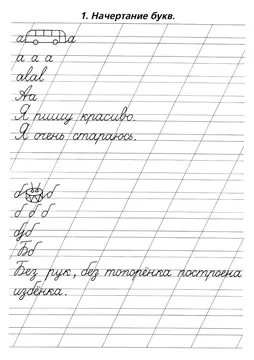 1. Начертание букв.
а а
а а а
аlаl
Аа
Я пишу красиво.
Я очень стараюсь.
б б
б б б
бlб
Бб
Без рук, без топорёнка построена
избёнка.